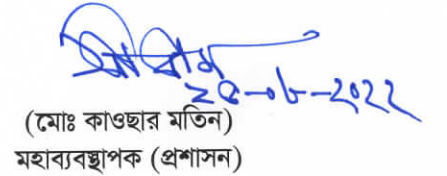 ২৫-০৮-২০২২
(মোঃ কাওছার মতিন)
মহাব্যবস্থাপক (প্রশাসন)